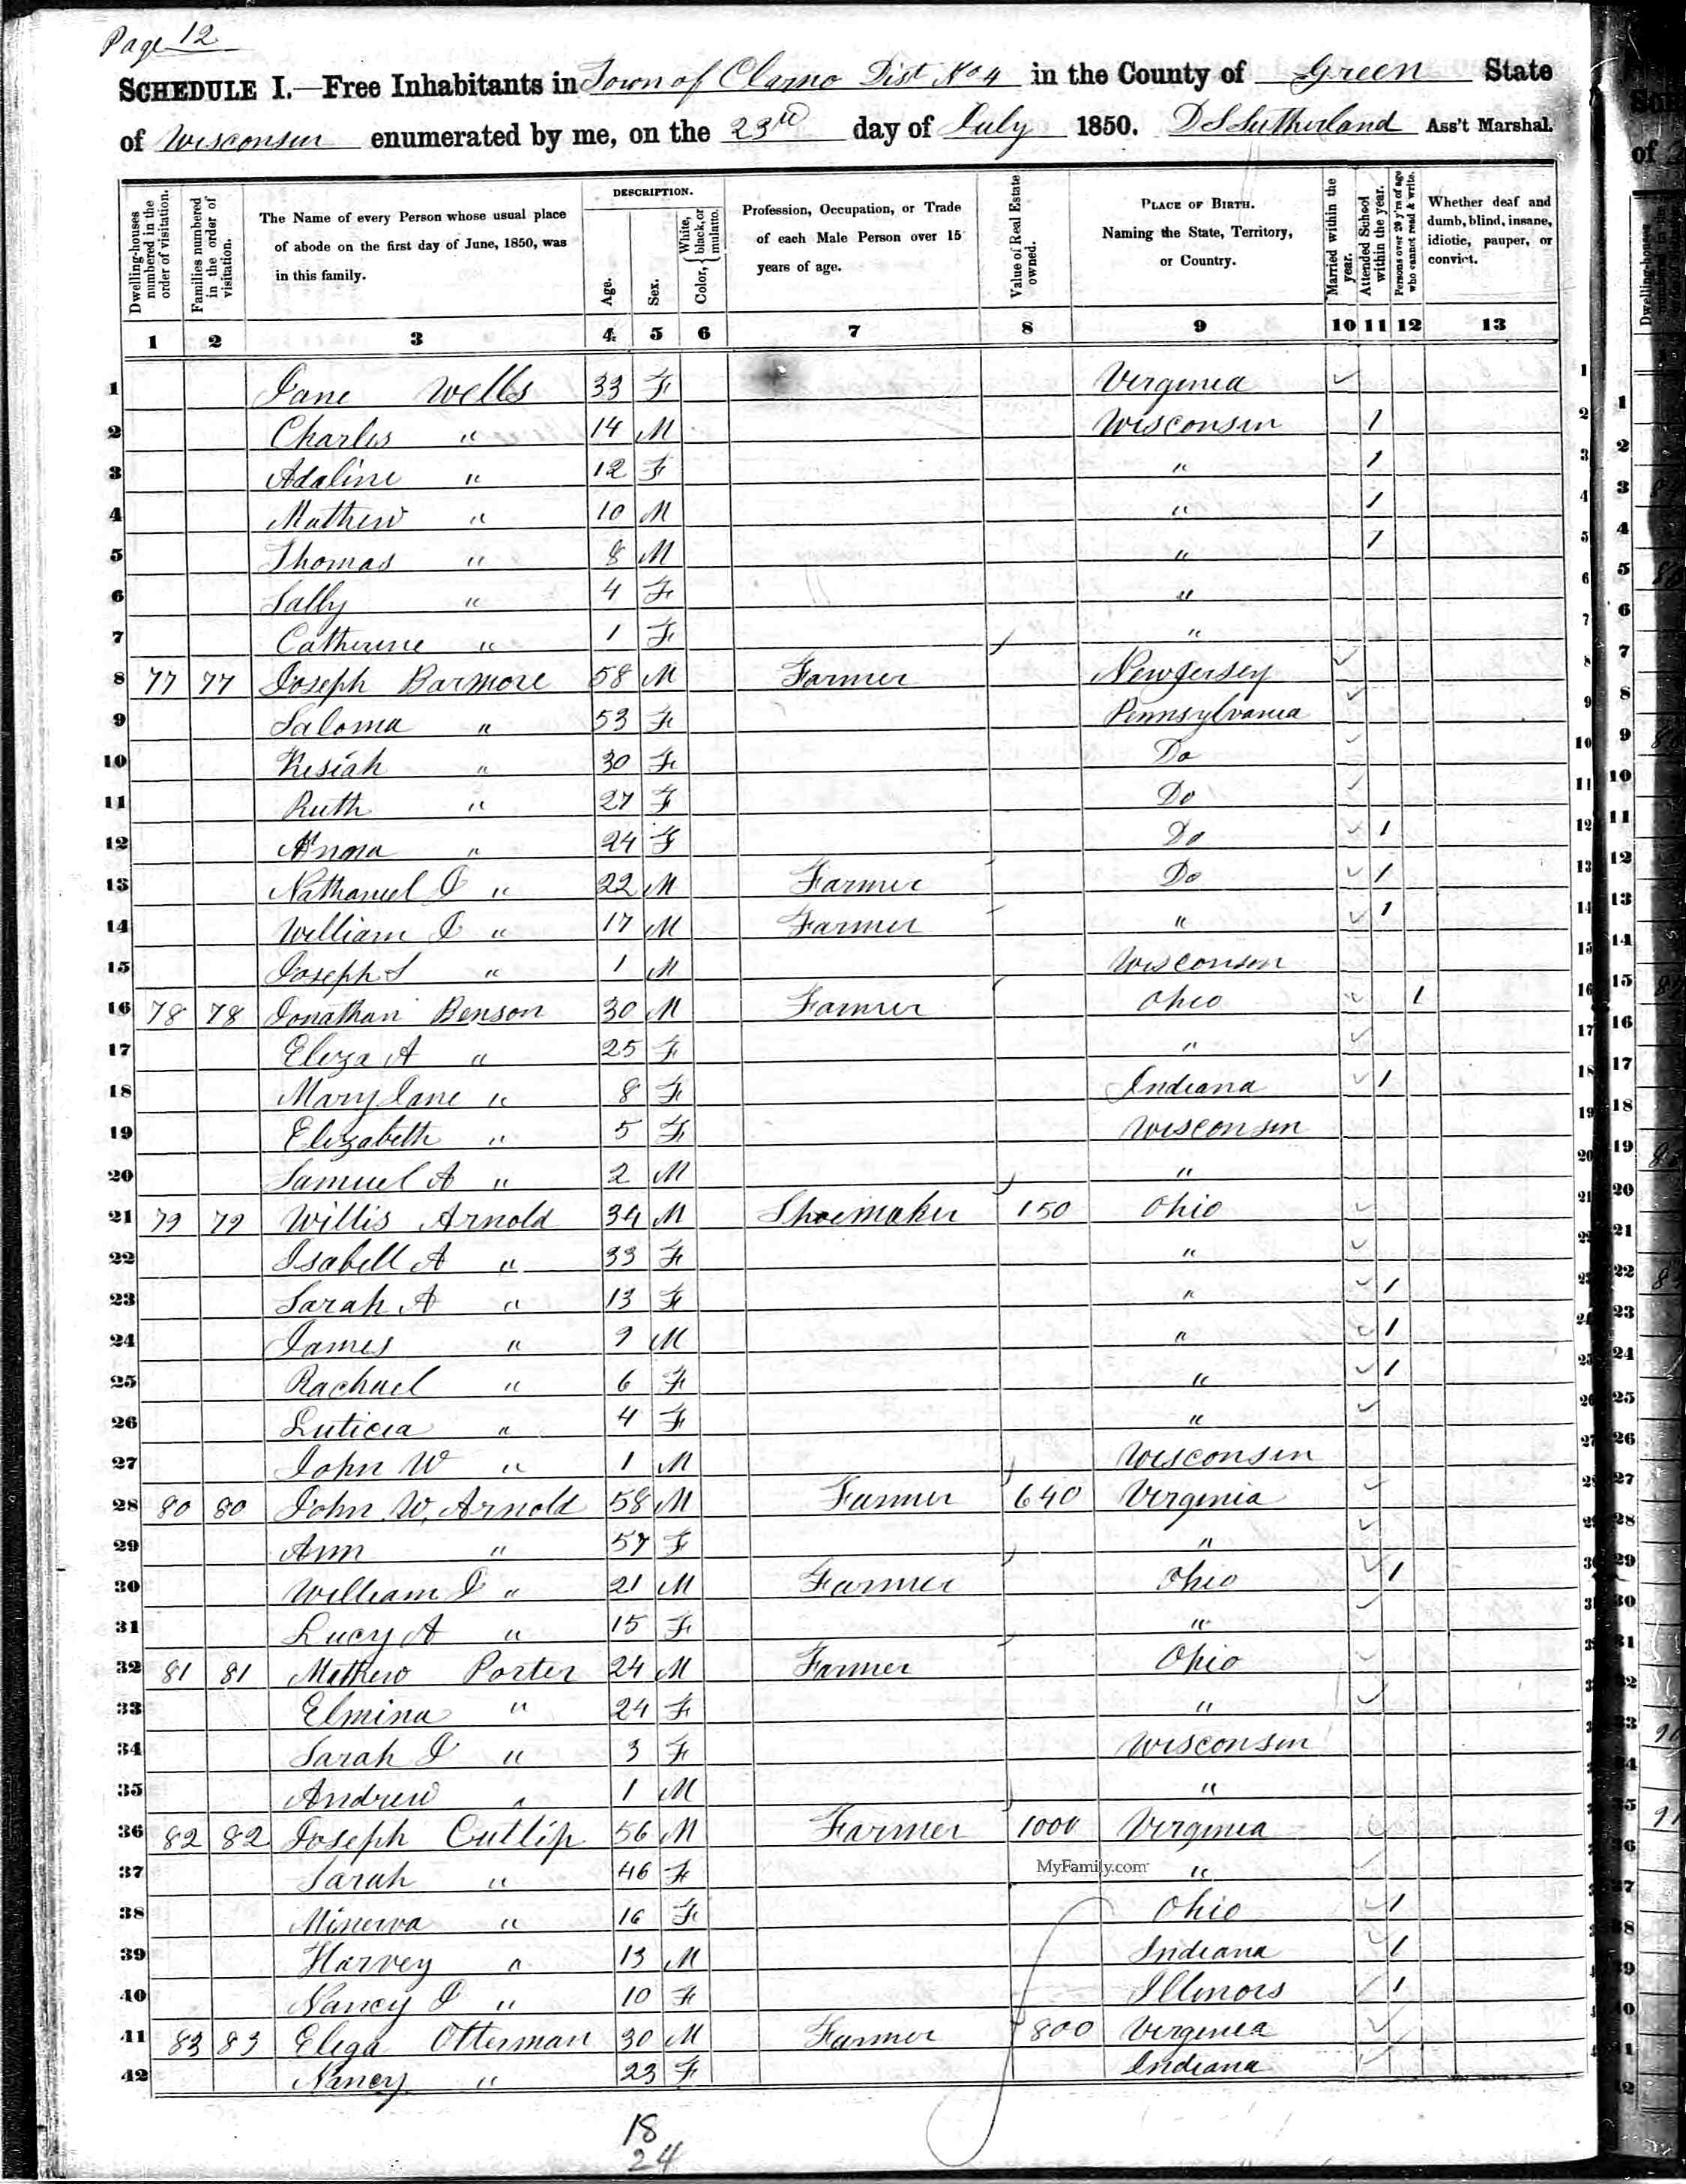 Page 12
SCHEDULE I.—Free Inhabitants in Town of Clarno Dist No 4 in the County of Green State
of Wisconsin enumerated by me, on the 23d day of July 1850. D S Sutherland Ass't Marshal.
Dwelling-houses numbered in the order of visitation.
Families numbered in the order of visitation.
The Name of every Person whose usual place of abode on the first day of June, 1850, was in this family.
DESCRIPTION.
Age.
Sex.
Color, { White, black, or mulatto.
Profession, Occupation, or Trade of each Male Person over 15 years of age.
Value of Real Estate owned.
PLACE OF BIRTH. Naming the State, Territory, or Country.
Married within the year.
Attended School within the year.
Persons over 20 y'rs of age who cannot read & write.
Whether deaf and dumb, blind, insane, idiotic, pauper, or convict.
1 2 3 4 5 6 7 8 9 10 11 12 13
1 Jane Wells 33 F Virginia 1
2 Charles " 14 M Wisconsin 1 2
3 Adaline " 12 F " 1 3
4 Mathew " 10 M " 1 4
5 Thomas " 8 M " 1 5
6 Sally " 4 F " 6
7 Catherine " 1 F " 7
8 77 77 Joseph Barmore 58 M Farmer New Jersey 8
9 Saloma " 53 F Pennsylvania 9
10 Kesiah " 30 F Do 10
11 Ruth " 27 F Do 11
12 Anna " 24 F Do 1 12
13 Nathaniel J " 22 M Farmer Do 1 13
14 William J " 17 M Farmer " 1 14
15 Joseph S " 1 M Wisconsin 15
16 78 78 Jonathan Benson 30 M Farmer Ohio 1 16
17 Eliza A " 25 F " 17
18 Mary Jane " 8 F Indiana 1 18
19 Elizabeth " 5 F Wisconsin 19
20 Samuel A " 2 M " 20
21 79 79 Willis Arnold 34 M Shoemaker 150 Ohio 21
22 Isabell A " 33 F "
23 Sarah A " 13 F " 1
24 James " 9 M " 1
25 Rachael " 6 F " 1
26 Luticia " 4 F "
27 John W " 1 M Wisconsin
28 80 80 John W. Arnold 58 M Farmer 640 Virginia
29 Ann " 57 F "
30 William J " 21 M Farmer Ohio 1
31 Lucy A " 15 F "
32 81 81 Mathew Porter 24 M Farmer Ohio
33 Elmina " 24 F "
34 Sarah J " 3 F Wisconsin
35 Andrew " 1 M "
36 82 82 Joseph Cutlip 56 M Farmer 1000 Virginia
37 Sarah " 46 F "
MyFamily.com
38 Minerva " 16 F Ohio 1
39 Harvey " 13 M Indiana 1
40 Nancy J " 10 F Illinois 1
41 83 83 Eliga Otterman 30 M Farmer 800 Virginia
42 Nancy " 23 F Indiana
18
24